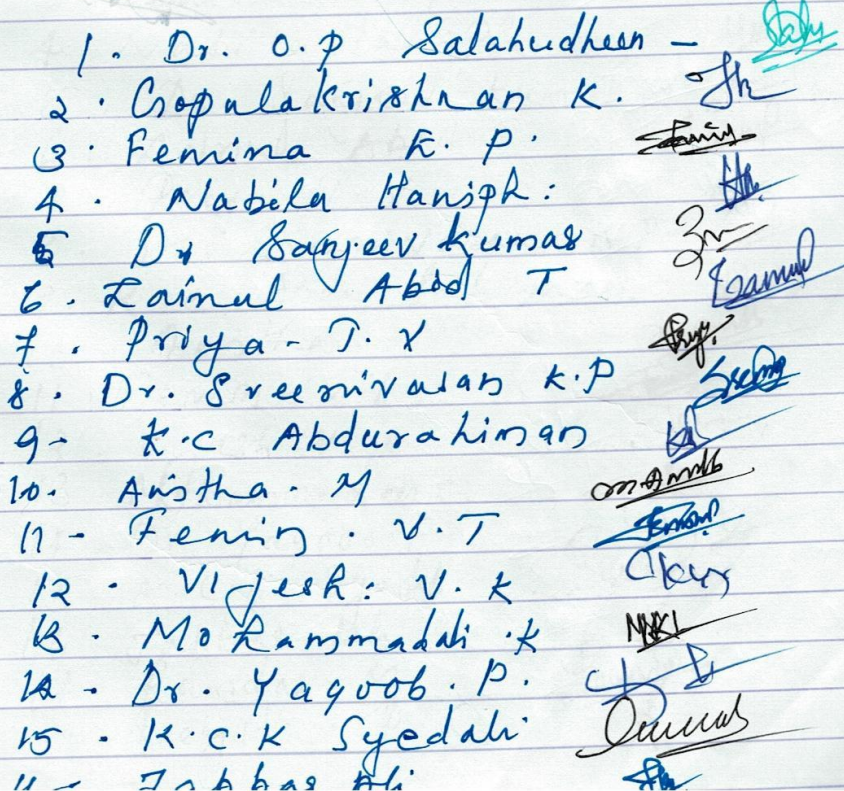 1. Dr. O.P Salahudheen -
2. Gopalakrishnan K.
3. Femina K. P.
4. Nabila Haniph:
5 Dr Sanjeev Kumar
6. Zainul Abid T
7. Priya - T. V
8. Dr. Sreenivasan K.P
9- K.C Abdurahiman
10. Anstha. M
11- Femin. V.T
12. Vijesh: V. K
13. Mohammadali.K
14. Dr. Yaqoob. P.
15. K.C.K Syedali
Jabbar Ali